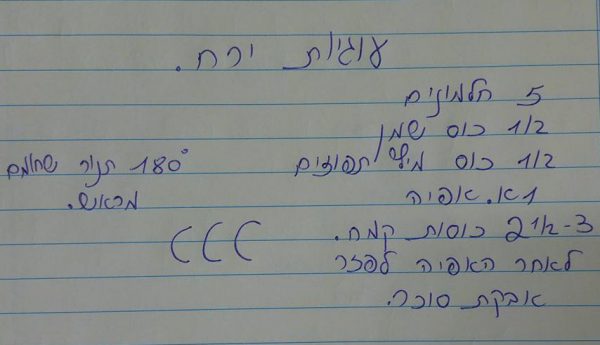 עוגיות ירח.
5 חלמונים
1/2 כוס שמן
1/2 כוס מיץ תפוזים
1 א. אפיה
3-2 1/2 כוסות קמח.
לאחר האפיה לפזר
אבקת סוכר.
180° תנור שחומם
מראש.